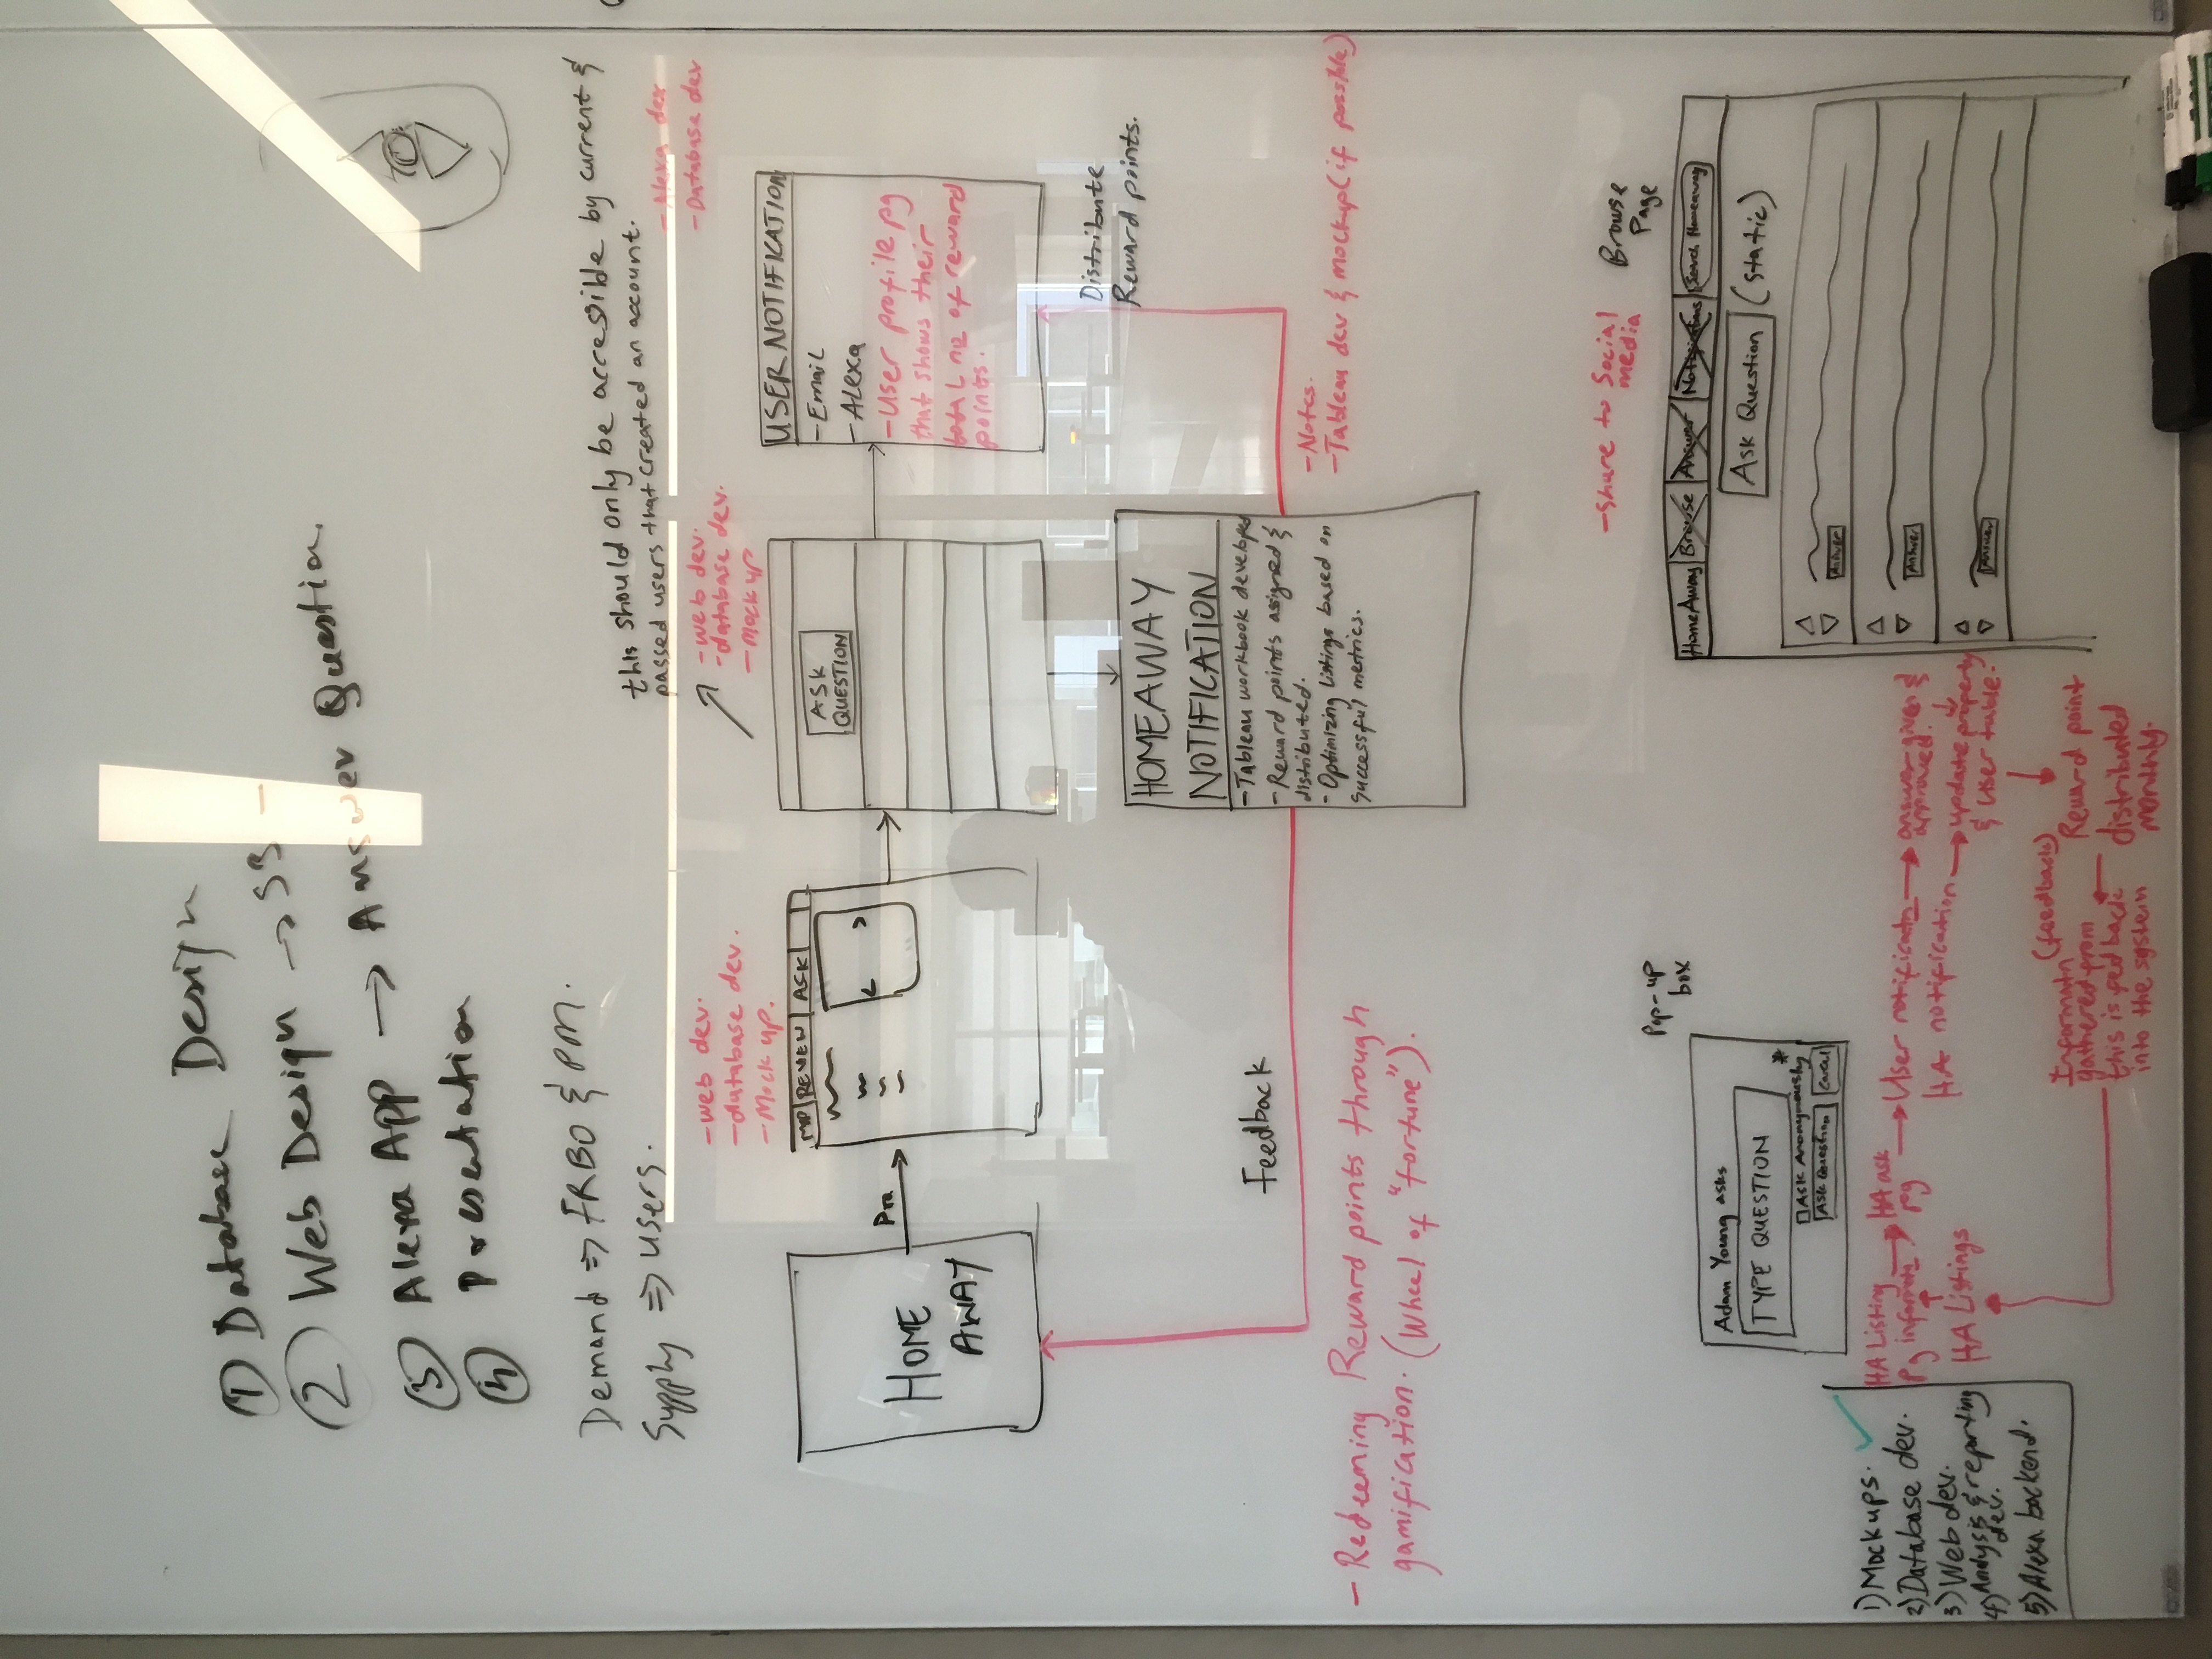 ① Database Design
② Web Design → S3 -
③ Alexa App → Answer Question
④ presentation
Demand => FRBO & PM.
Supply => users.
this should only be accesible by current &
passed users that created an account.
- Alexa dev
- Database dev
- web dev.
- database dev.
- Mock up.
- web dev.
- database dev.
- Mock up
HOME
AWAY
MAP
REVIEW
ASK
ASK
QUESTION
USER NOTIFICATION
- Email
- Alexa
- User profile pg
that shows their
total no of reward
points.
Distribute
Reward points.
HOMEAWAY
NOTIFICATION
- Tableau workbook developed
- Reward points assigned &
distributed.
- Optimizing listings based on
successful metrics.
Feedback
- Notes.
- Tableau dev & mockup (if possible)
- Redeeming Reward points through
gamification. (Wheel of "fortune").
- Share to Social
media
Browse
Page
HomeAway
Browse
Answer
Notifications
Search Homeaway
Ask Question
(Static)
Answer
Answer
Answer
Pop-up
box
Adam Young asks
TYPE QUESTION
*
Ask Anonymously
Ask Question
Cancel
HA Listing → HA ask → User notificatn → answer given &
pg pg approved.
HA notification → update property
& user table.
HA Listings
Informatn (feedback) Reward point
gathered from distributed
this is fed back monthly.
into the system
1) Mockups.
2) Database dev.
3) Web dev.
4) Analysis & reporting
dev.
5) Alexa backend.